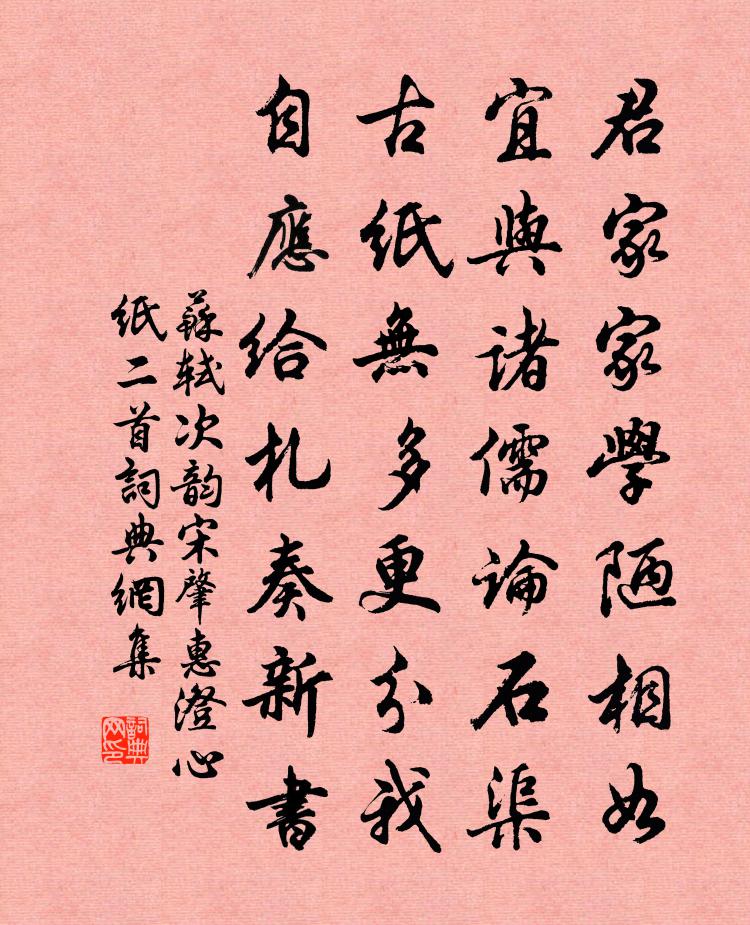 君家家學陋相如
宜與諸儒論石渠
古紙無多更分我
自應給札奏新書
蘇軾次韵宋肇惠澄心
紙二首詞典網集
詞典网印